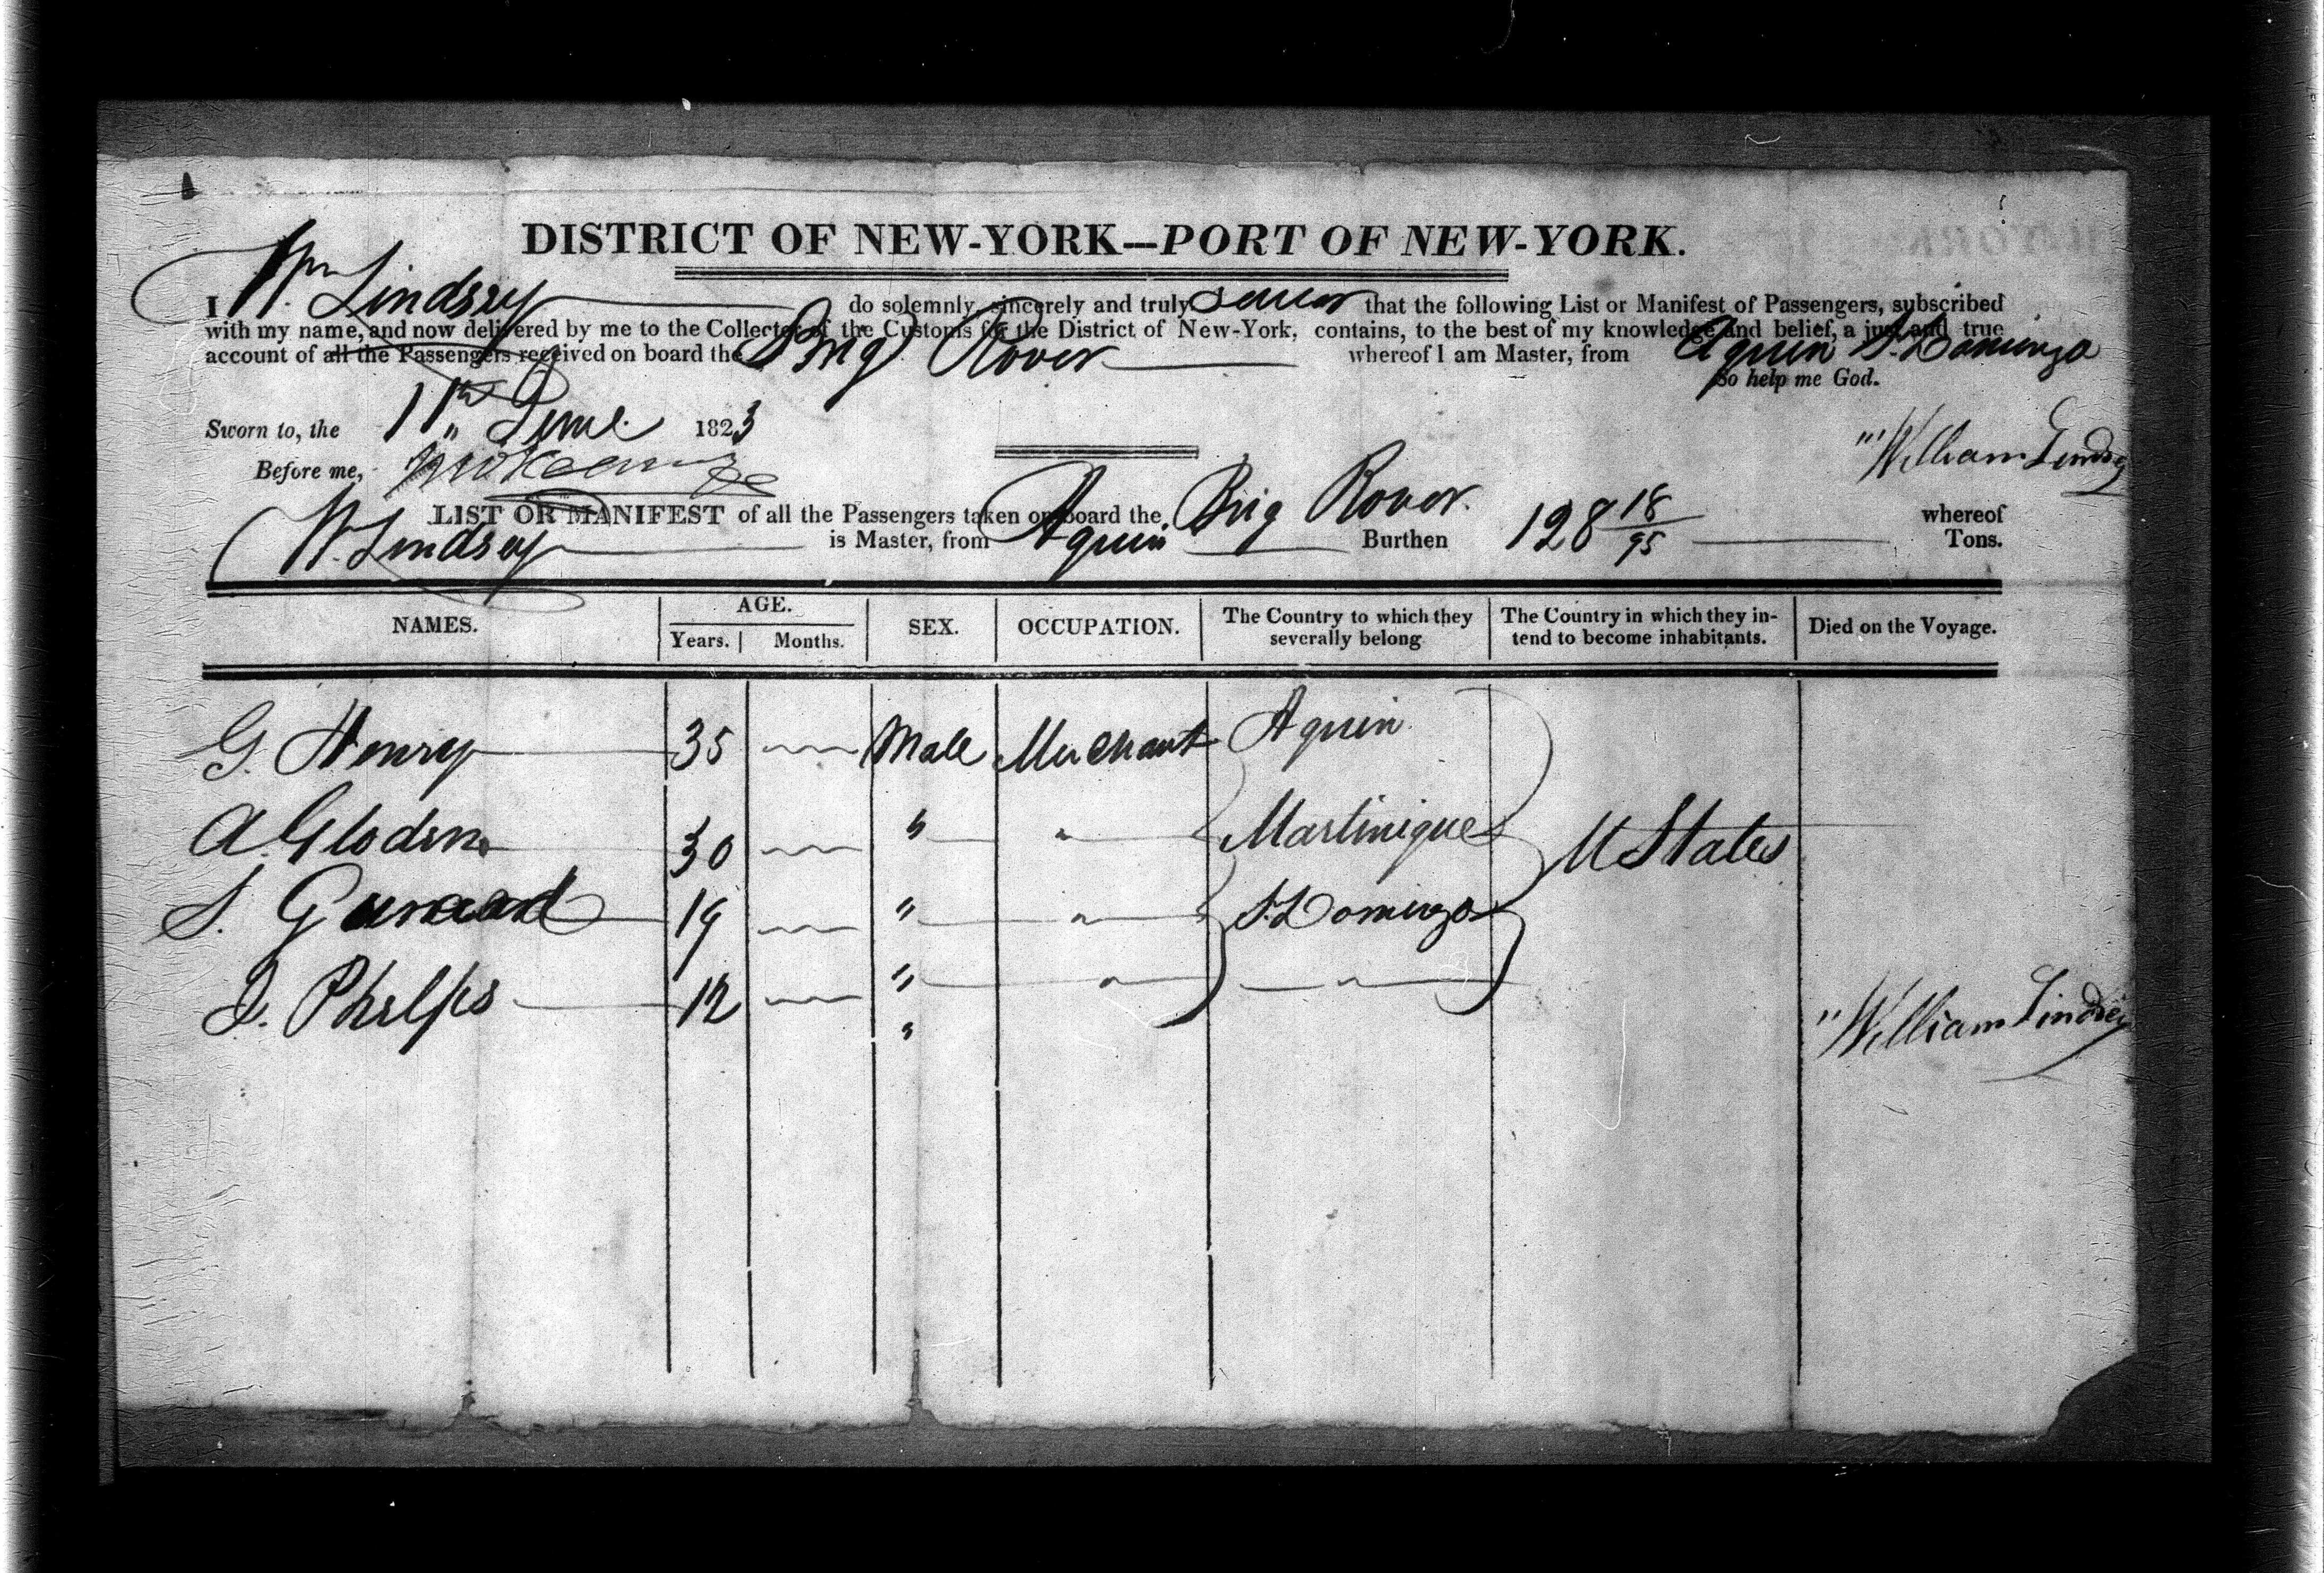 DISTRICT OF NEW-YORK—PORT OF NEW-YORK.
I Wm Lindsey do solemnly, sincerely and truly swear that the following List or Manifest of Passengers, subscribed
with my name, and now delivered by me to the Collector of the Customs for the District of New-York, contains, to the best of my knowledge and belief, a just and true
account of all the Passengers received on board the Brig Rover whereof I am Master, from Aquin St. Domingo
So help me God.
Sworn to, the 11th June 1823
William Lindsey
Before me,
LIST OR MANIFEST of all the Passengers taken on board the Brig Rover whereof
W. Lindsey is Master, from Aquin Burthen 128 18/95 Tons.
NAMES. AGE. SEX. OCCUPATION. The Country to which they severally belong The Country in which they in-tend to become inhabitants. Died on the Voyage.
Years. Months.
G. Henry 35 Male Merchant Aquin
A. 30 " " Martinique U States
S. 19 " " St. Domingo
J. Phelps 12 " " "
"
William Lindsey